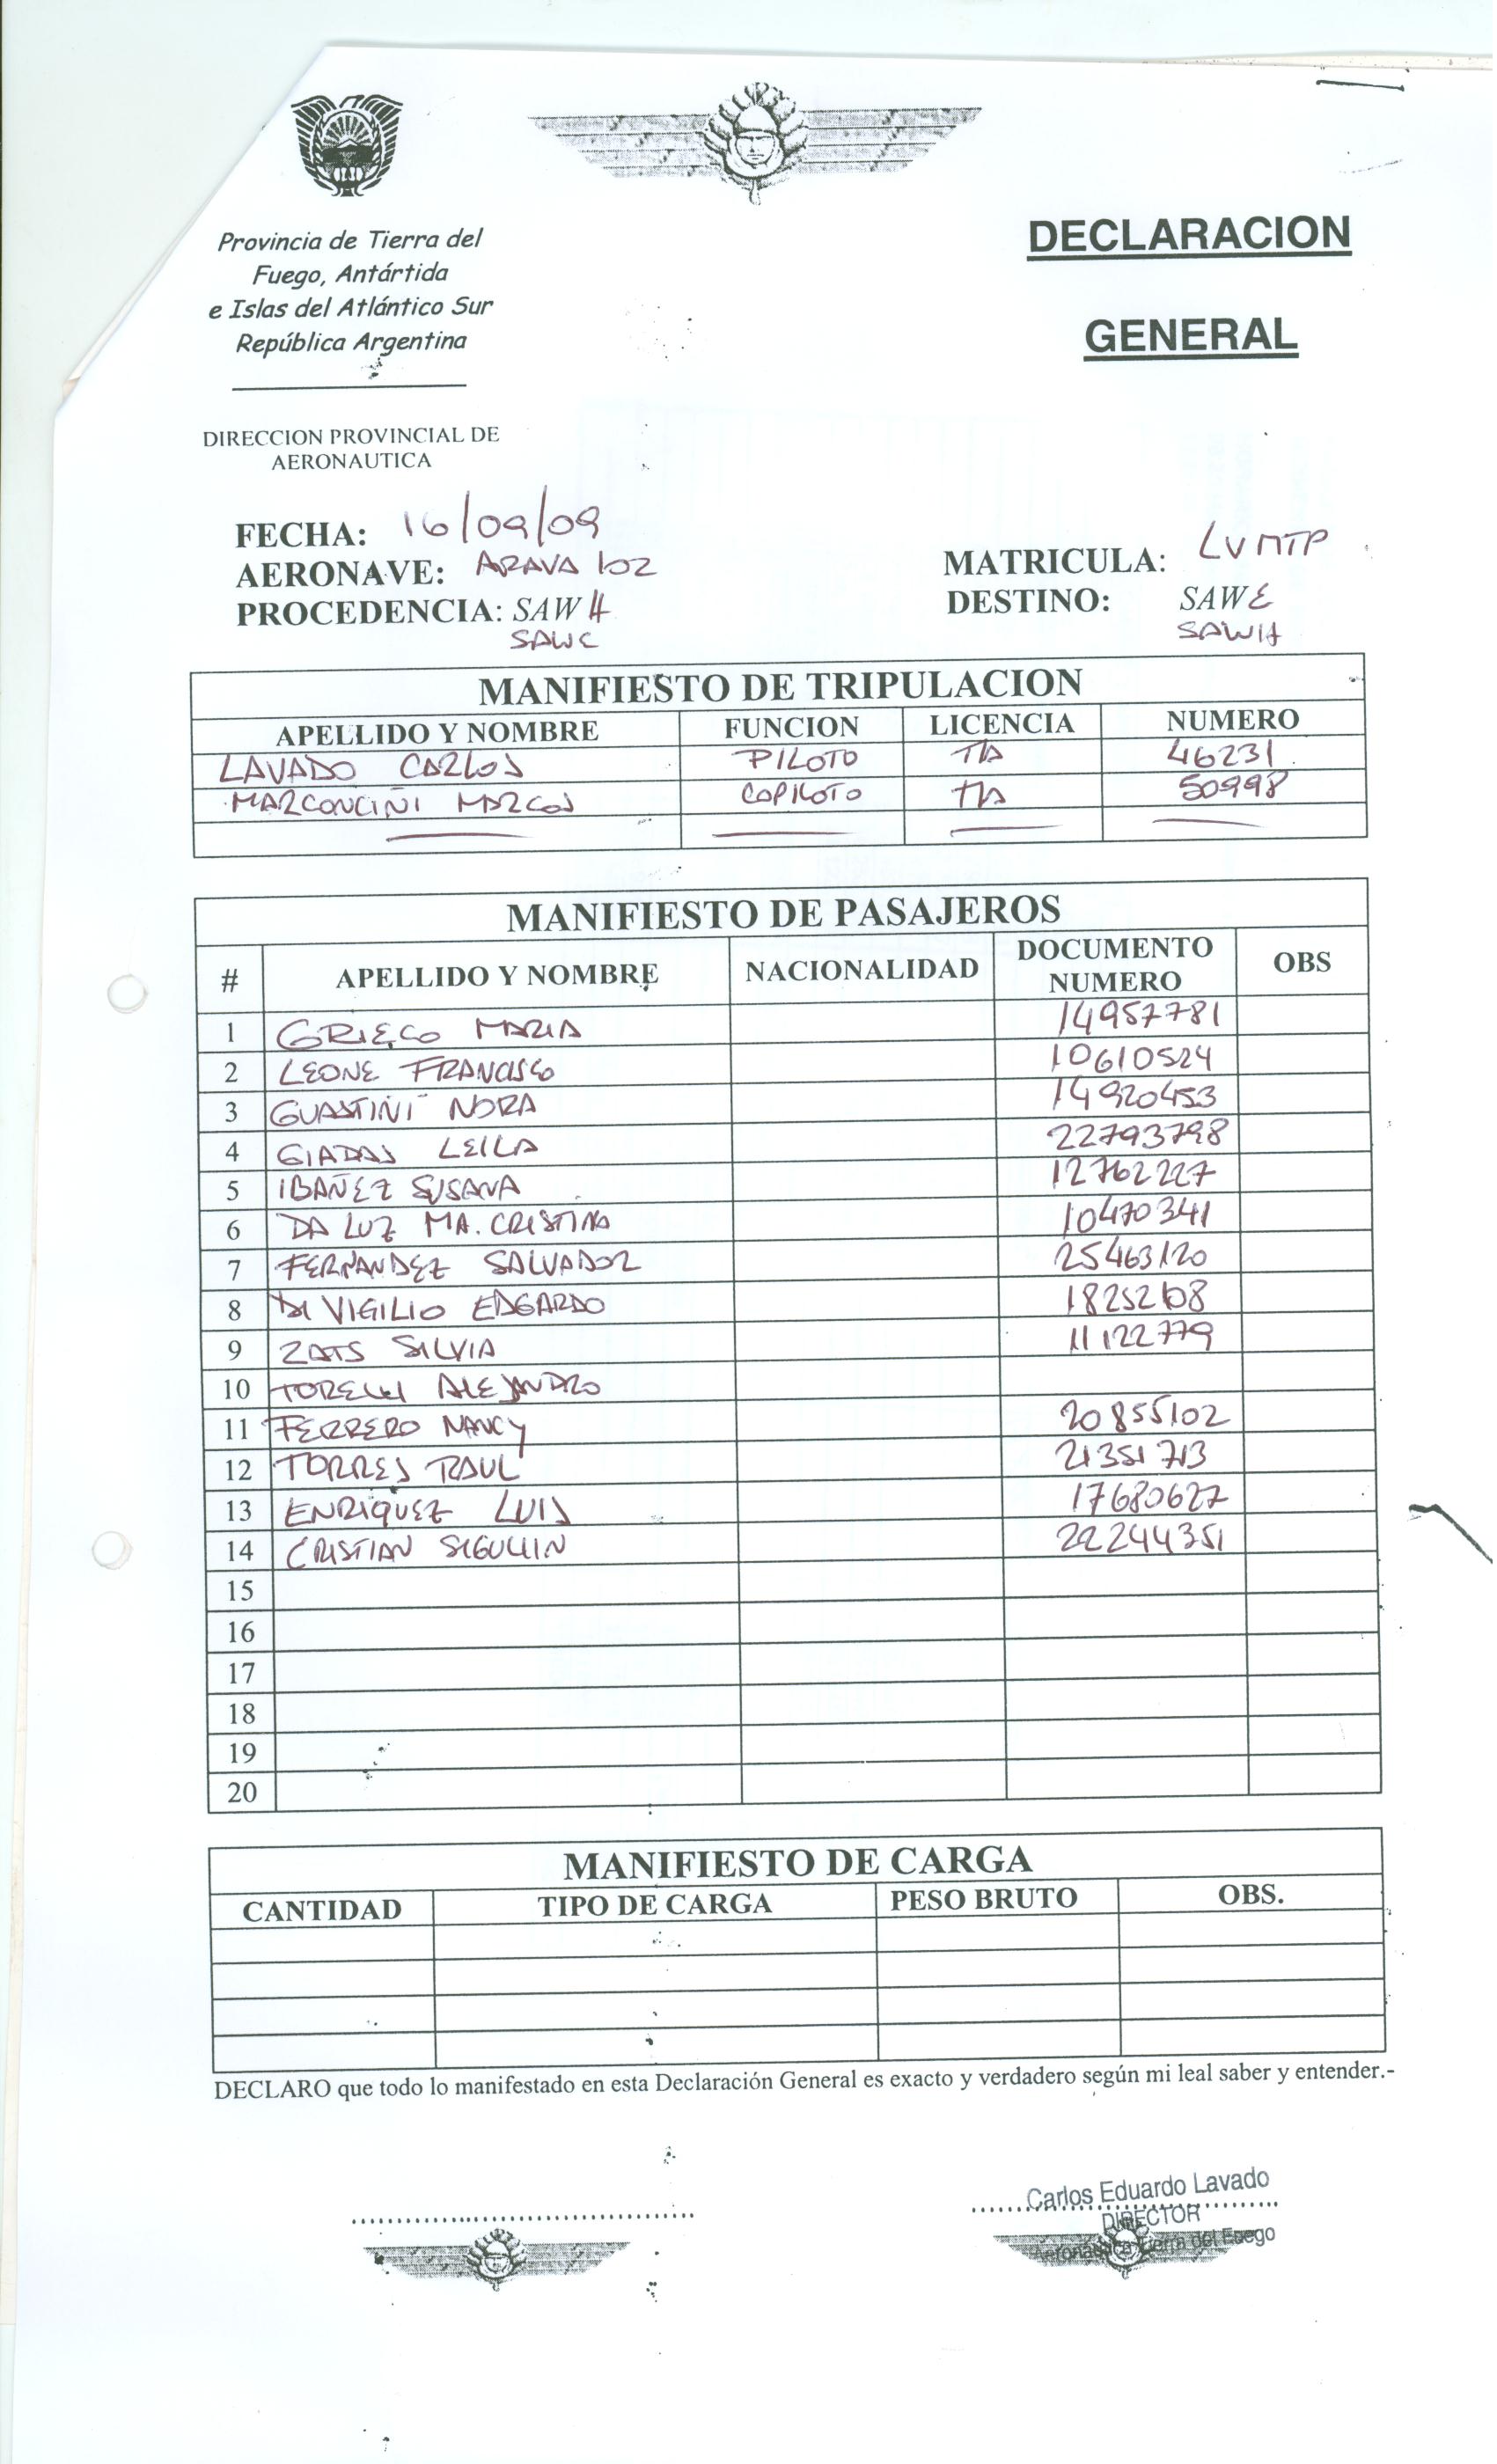 Provincia de Tierra del
Fuego, Antártida
e Islas del Atlántico Sur
República Argentina
DECLARACION
GENERAL
DIRECCION PROVINCIAL DE
AERONAUTICA
FECHA: 16/09/09
AERONAVE: ARAVA 102 MATRICULA: LVMTP
PROCEDENCIA: SAWH DESTINO: SAWE
SAWC SAWH
MANIFIESTO DE TRIPULACION
APELLIDO Y NOMBRE FUNCION LICENCIA NUMERO
LAVADO CARLOS PILOTO TLA 46231
MARCONCINI MARCOS COPILOTO TLA 50998
MANIFIESTO DE PASAJEROS
# APELLIDO Y NOMBRE NACIONALIDAD DOCUMENTO NUMERO OBS
1 GRIECO MARIA 14957781
2 LEONE FRANCISCO 10610524
3 GUASTINI NORA 14920453
4 GIADAS LEILA 22793798
5 IBAÑEZ SUSANA 12762227
6 DA LUZ MA. CRISTINA 10470341
7 FERNANDEZ SALVADOR 25463120
8 DI VIGILIO EDGARDO 18252108
9 ZATS SILVIA 11122779
10 TORELLI ALEJANDRO
11 FERRERO NANCY 20855102
12 TORRES RAUL 21351713
13 ENRIQUEZ LUIS 17680627
14 CRISTIAN 22244351
15
16
17
18
19
20
MANIFIESTO DE CARGA
CANTIDAD TIPO DE CARGA PESO BRUTO OBS.
DECLARO que todo lo manifestado en esta Declaración General es exacto y verdadero según mi leal saber y entender.-
Carlos Eduardo Lavado
DIRECTOR
Aeronáutica Tierra del Fuego